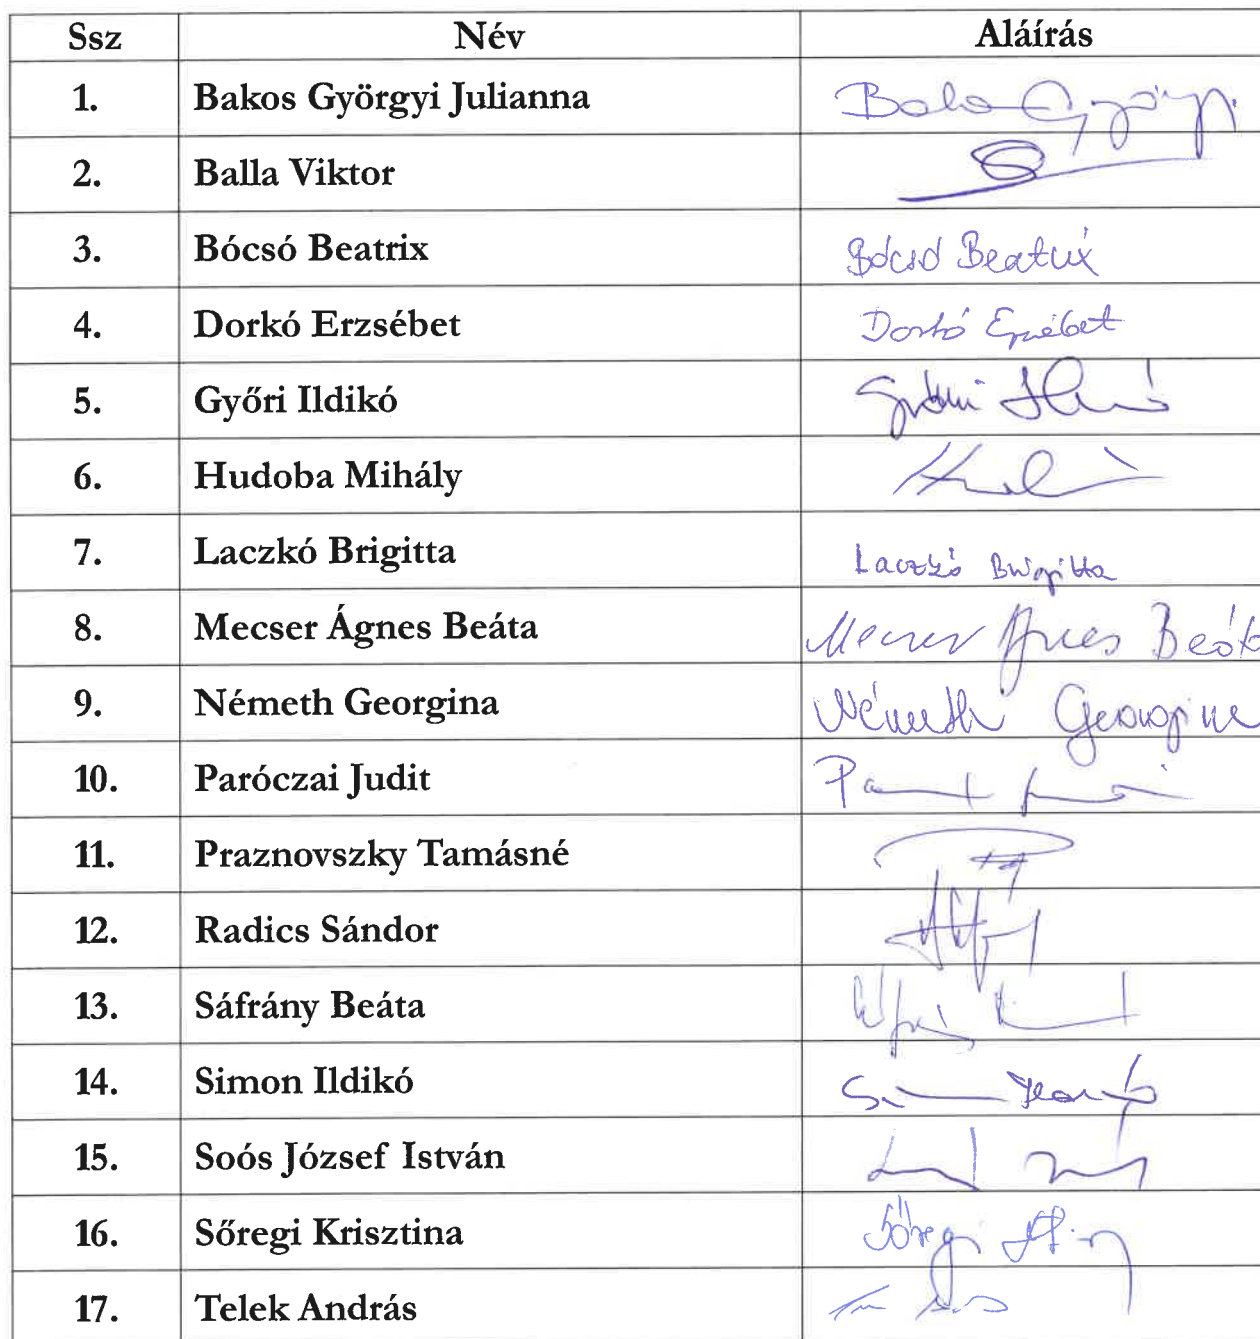 Ssz Név Aláírás
1. Bakos Györgyi Julianna
2. Balla Viktor
3. Bócsó Beatrix Bócsó Beatrix
4. Dorkó Erzsébet Dorkó Erzsébet
5. Győri Ildikó
6. Hudoba Mihály
7. Laczkó Brigitta Laczkó Brigitta
8. Mecser Ágnes Beáta Mecser Ágnes Beáta
9. Németh Georgina Németh Georgina
10. Paróczai Judit
11. Praznovszky Tamásné
12. Radics Sándor
13. Sáfrány Beáta
14. Simon Ildikó
15. Soós József István
16. Sőregi Krisztina Sőregi
17. Telek András